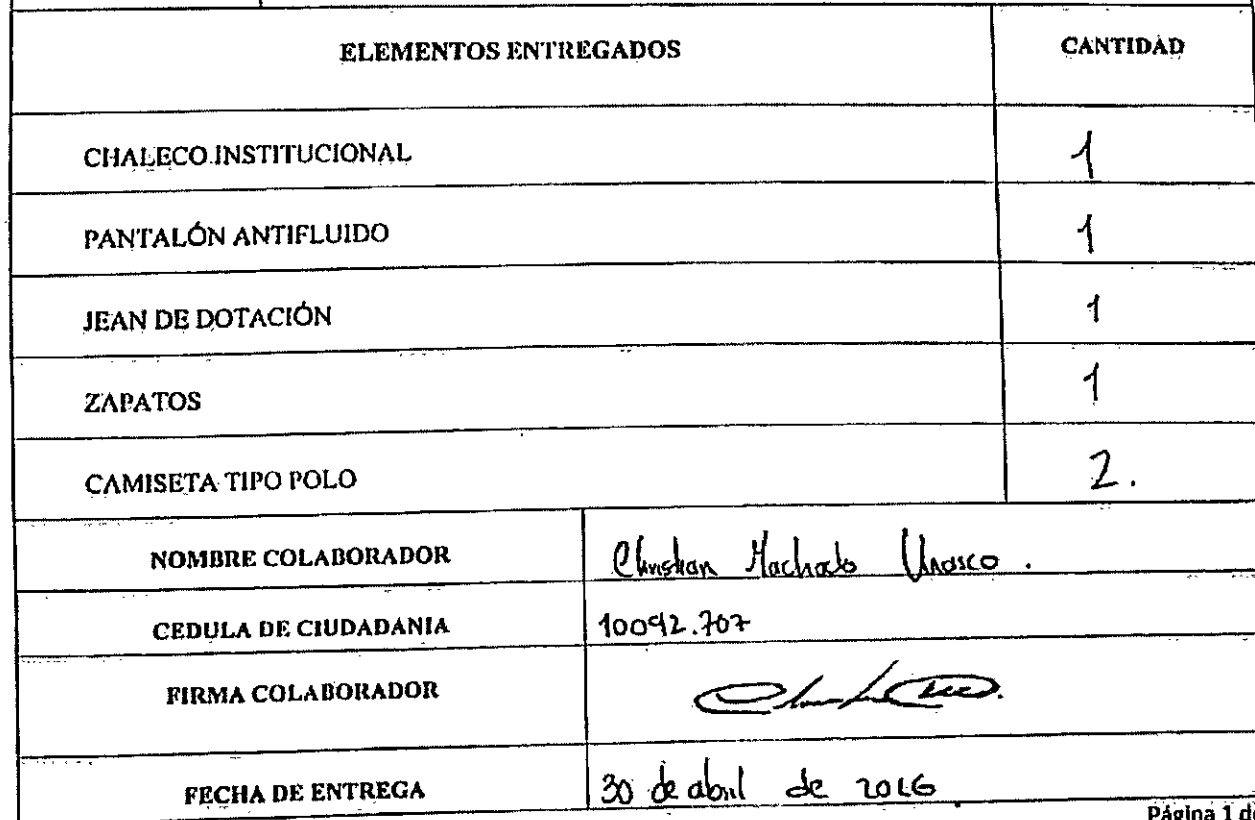 ELEMENTOS ENTREGADOS CANTIDAD
CHALECO INSTITUCIONAL 1
PANTALÓN ANTIFLUIDO 1
JEAN DE DOTACIÓN 1
ZAPATOS 1
CAMISETA TIPO POLO 2.
NOMBRE COLABORADOR Christian Machado
CEDULA DE CIUDADANIA 10092.707
FIRMA COLABORADOR
FECHA DE ENTREGA 30 de abril de
Página 1 d